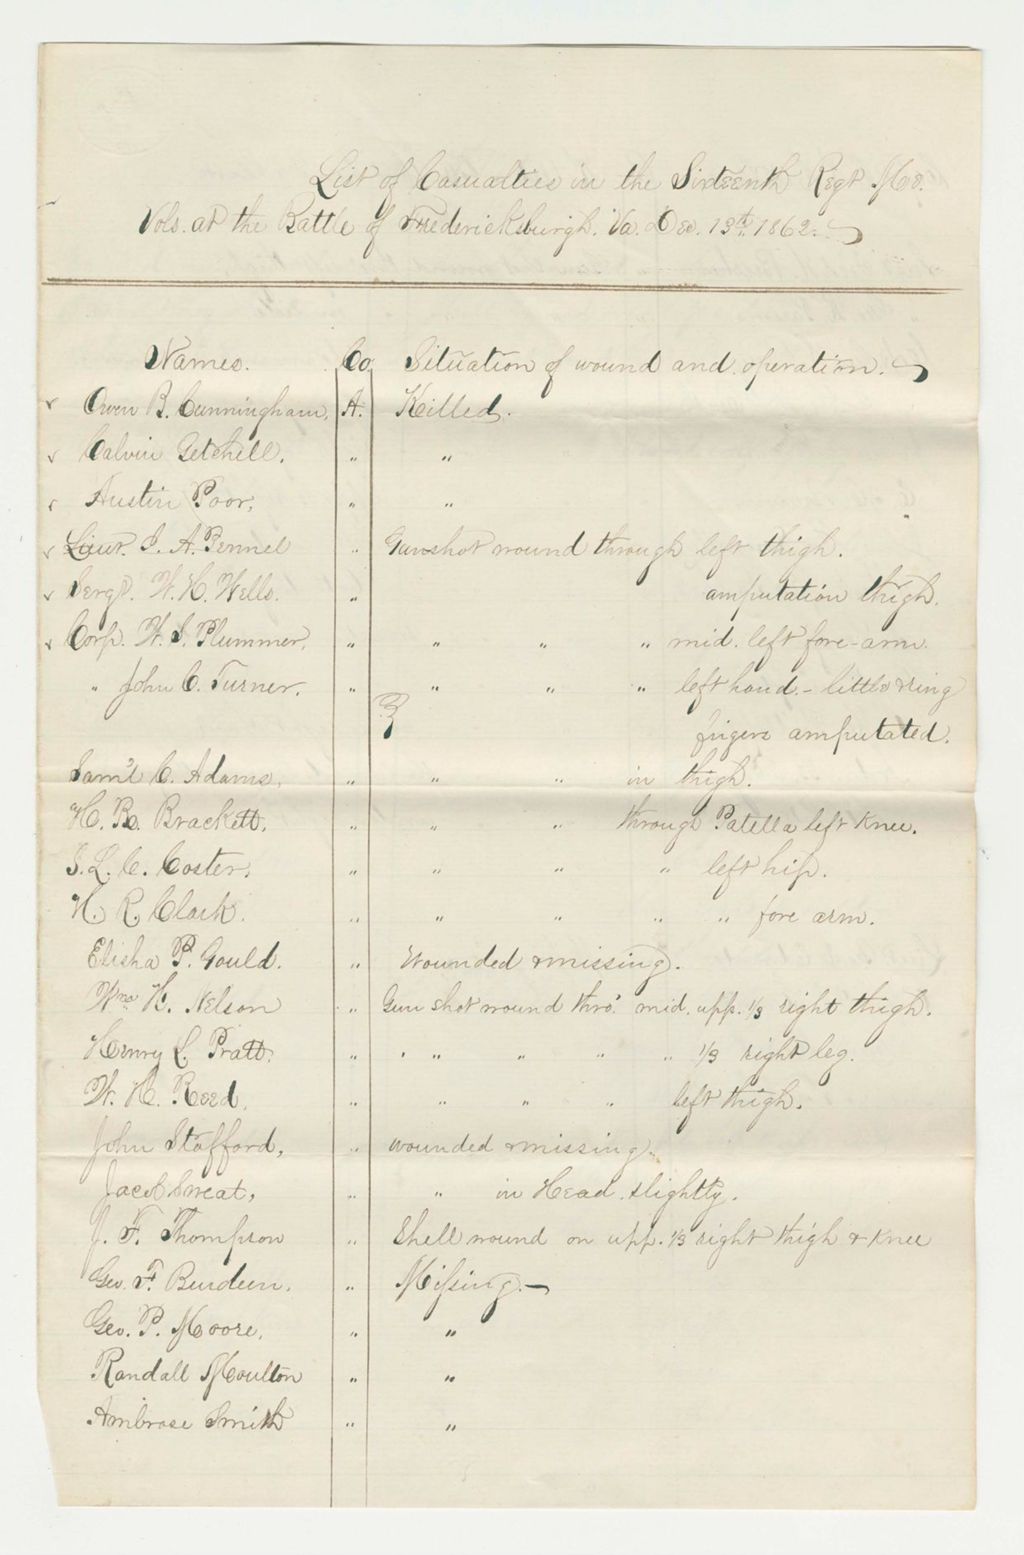 List of Casualties in the Sixteenth Regt Me.
Vols. at the Battle of Fredericksburgh. Va. Dec. 13th 1862.
Names. Co. Situation of wound and operation.
Owen B. Cunningham, A. Killed.
Calvin Getchell. " "
Austin Poor, " "
Lieut. I. A. Pennel " Gunshot wound through left thigh.
Sergt. W. H. Wells. " amputation thigh.
Corp. W. I. Plummer, " " " " mid. left fore-arm.
" John C. Turner. " " " " left hand - little & ring
fingers amputated.
Sam'l C. Adams, " " " in thigh.
H. B. Brackett, " " " through Patella left Knee.
I. L. C. Coster, " " " " left hip.
H. R. Clark. " " " " " fore arm.
Elisha P. Gould. " Wounded & missing.
Wm H. Nelson " Gun shot wound thro' mid. upp. 1/3 right thigh.
Henry L. Pratt. " " " " " 1/3 right leg.
W. H. Reed. " " " " left thigh.
John Stafford, " wounded & missing.
Jacob Sweat, " " in Head slightly.
J. F. Thompson " Shell wound on upp. 1/3 right thigh & Knee
Geo. F. Burdeen. " Missing.—
Geo. P. Moore, " "
Randall Moulton " "
Ambrose Smith " "